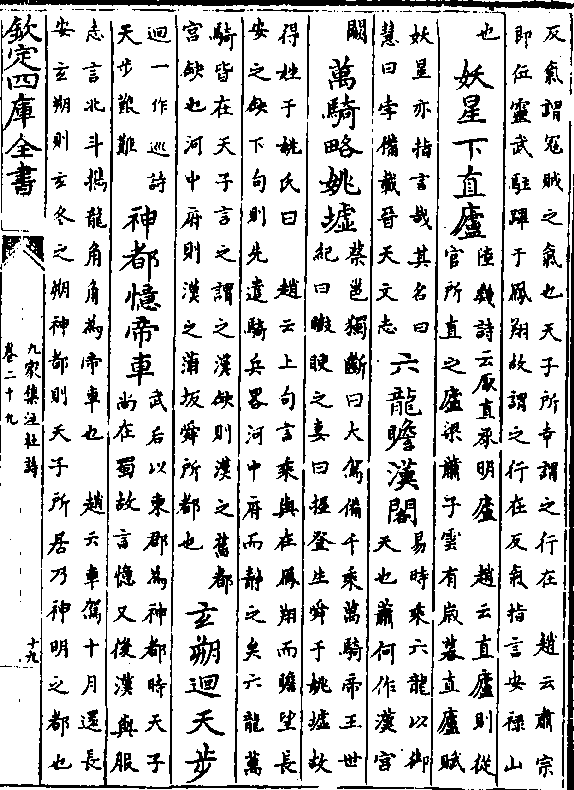 反氣謂冦賊之氣也天子所幸謂之行在　趙云肅宗
即位靈武駐蹕于鳳翔故謂之行在反氣指言安祿山
也
妖星下直廬
陸機詩云厭直承明廬　趙云直廬則從
官所直之廬梁蕭子雲有歲暮直廬賦
妖星亦指言哉其名曰
慧曰孛備載晉天文志
六龍瞻漢闕
易時乘六龍以御
天也蕭何作漢宮
闕
萬騎略姚墟
蔡邕獨斷曰大駕備千乘萬騎帝王世
紀曰瞍瞍之妻曰握登生舜于姚墟故
得姓于姚氏曰　趙云上句言乘輿在鳳翔而瞻望長
安之缺下句則先遣騎兵畧河中府而靜之矣六龍萬
騎皆在天子言之謂之漢缺則漢之舊都
宮缺也河中府則漢之蒲坂舜所都也
玄朔迴天步
迴一作巡詩
天步艱難
神都憶帝車
武后以東郡為神都時天子
尚在蜀故言憶又後漢輿服
志言北斗携龍角角為帝車也　趙云車駕十月還長
安玄朔則玄冬之朔神都則天子所居乃神明之都也
欽定四庫全書
九家集注杜詩
卷二十九
十九